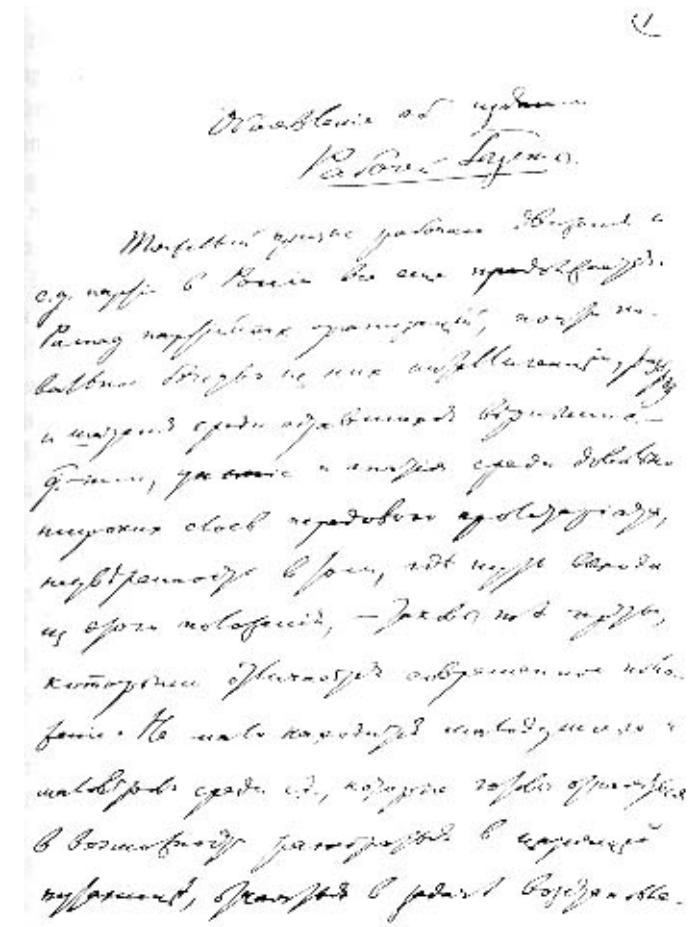 1
Объявленiе об изданiи
Рабочей Газеты.
Тяжелый кризис рабочаго движенiя и
с.д. партiи в Россiи все еще продолжается.
Распад партiйных организацiй, почти по-
вальное бегство из них интеллигенцiи, разброд
и шатанiя среди оставшихся верными с.-
д.-тiи, унынiе и апатiя среди довольно
широких слоев передового пролетарiата,
неувѣренность в том, гдѣ путь выхода
из этого положенiй, — таковы тѣ черты,
которыми отличается современное поло-
женiе. Не мало находится малодушных и
маловѣров среди с.д., которые готовы отчаяться
в возможности разобраться в царящей
путаницѣ, отчаяться в задачѣ возстановле-